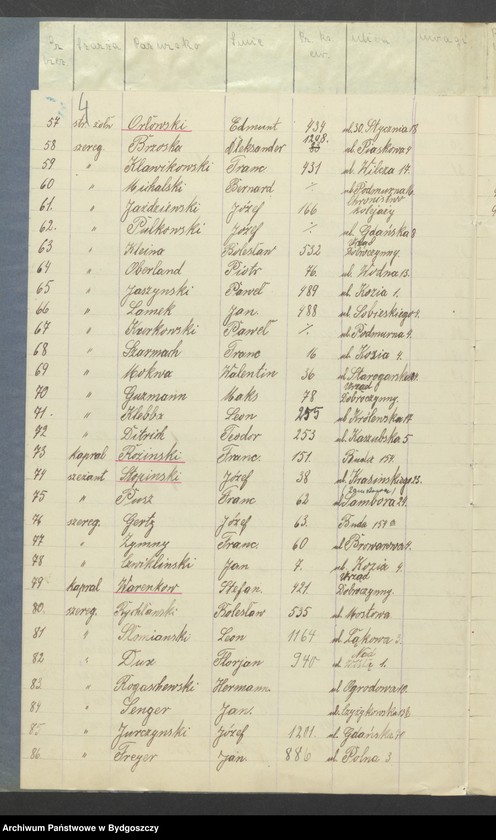 Nr szer Szarża Nazwisko Imię Nr. ks. ew. ulica uwagi
4
57 str. żołn Orłowski Edmunt 434 ul 30. Stycznia 18
58 szereg. Brzoska Aleksander 1298. ul Piaskowa 4
59 " Klawikowski Franc 431 ul. Wilcza 14.
60 " Michalski Bernard % ul Podmurna 16.
61. " Jażdziewski Józef 166 kolejarzy
62. " Pulkowski Józef % ul. Gdańska 8
63 " Kleina Bolesław 532 Urząd Dobroczynny.
64 " Oberland Piotr 46. ul. Wodna 13.
65 " Jaszynski Paweł 489 ul. Kozia 1.
66 " Lamek Jan. 488 ul. Sobieskiego 4.
67 " Kurkowski Paweł % ul Podmurna 4.
68 " Szarmach Franc 16 ul Kozia 4.
69 " Mokwa Walentin 36 ul. Starogardzka
70 " Guzmann Maks 78 Urząd Dobroczynny.
71. " Klebba Leon 255 ul. Królewska 14.
72 " Ditrih Teodor 253 ul. Kaszubska 5
73 kapral Rozinski Franc. 151. Buda 154.
74 szerżant Stopinski Józef 38 ul. Krasinskiego 23.
75 " Pusz Franc 62 ul. Sambora 24.
76 szereg. Gertz Józef 63. Buda 154 a
77 " Zymny Franc. 60 ul Browarna 4.
78 " Cwiklinski Jan 7. ul. Kozia 4
79 kapral Warenkow Stefan. 421. Urząd Dobroczynny.
80. szereg. Rychlański Bolesław 535 ul. Mostowa.
81 " Słomianski Leon 1164 ul. Łąkowa 3.
82 " Dux Florjan 940 ul. 1.
83. " Rogaschewski Hermann. ul Ogrodowa 10.
84 " Senger Jan. ul. Czyżykowska
85 " Jurczynski Józef 1201. ul. Gdańska
86. " Freyer Jan. 886 ul. Polna 3
Archiwum Państwowe w Bydgoszczy